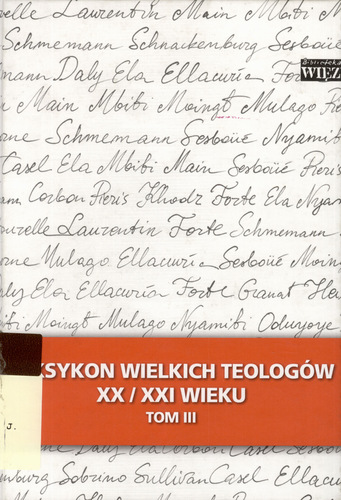 velle Laurentin Main Mbiti M
Schmemann Schnackenburg Sesboüé
Biblioteka
WIĘŹ
mann Daly Ela Ellacuría For
n Main Mbiti Moingt Mulago Pier
rne Schmemann Sesboüé Nyamiti
Casel Ela Mbiti Main Sesboüé Pieris
n Corbon Pieris Khodr Forte Ela Nyam
ourvelle Laurentin Forte Schmemann
rne Mulago Ellacuría Sesboüé Moin
aly Ela Ellacuría Forte Granat He
biti Moingt Mulago Nyamiti Oduyoye
KSYKON WIELKICH TEOLOGÓW
XX / XXI WIEKU
TOM III
J.
Casel
nburg Sobrino Sullivan Casel Ellacu